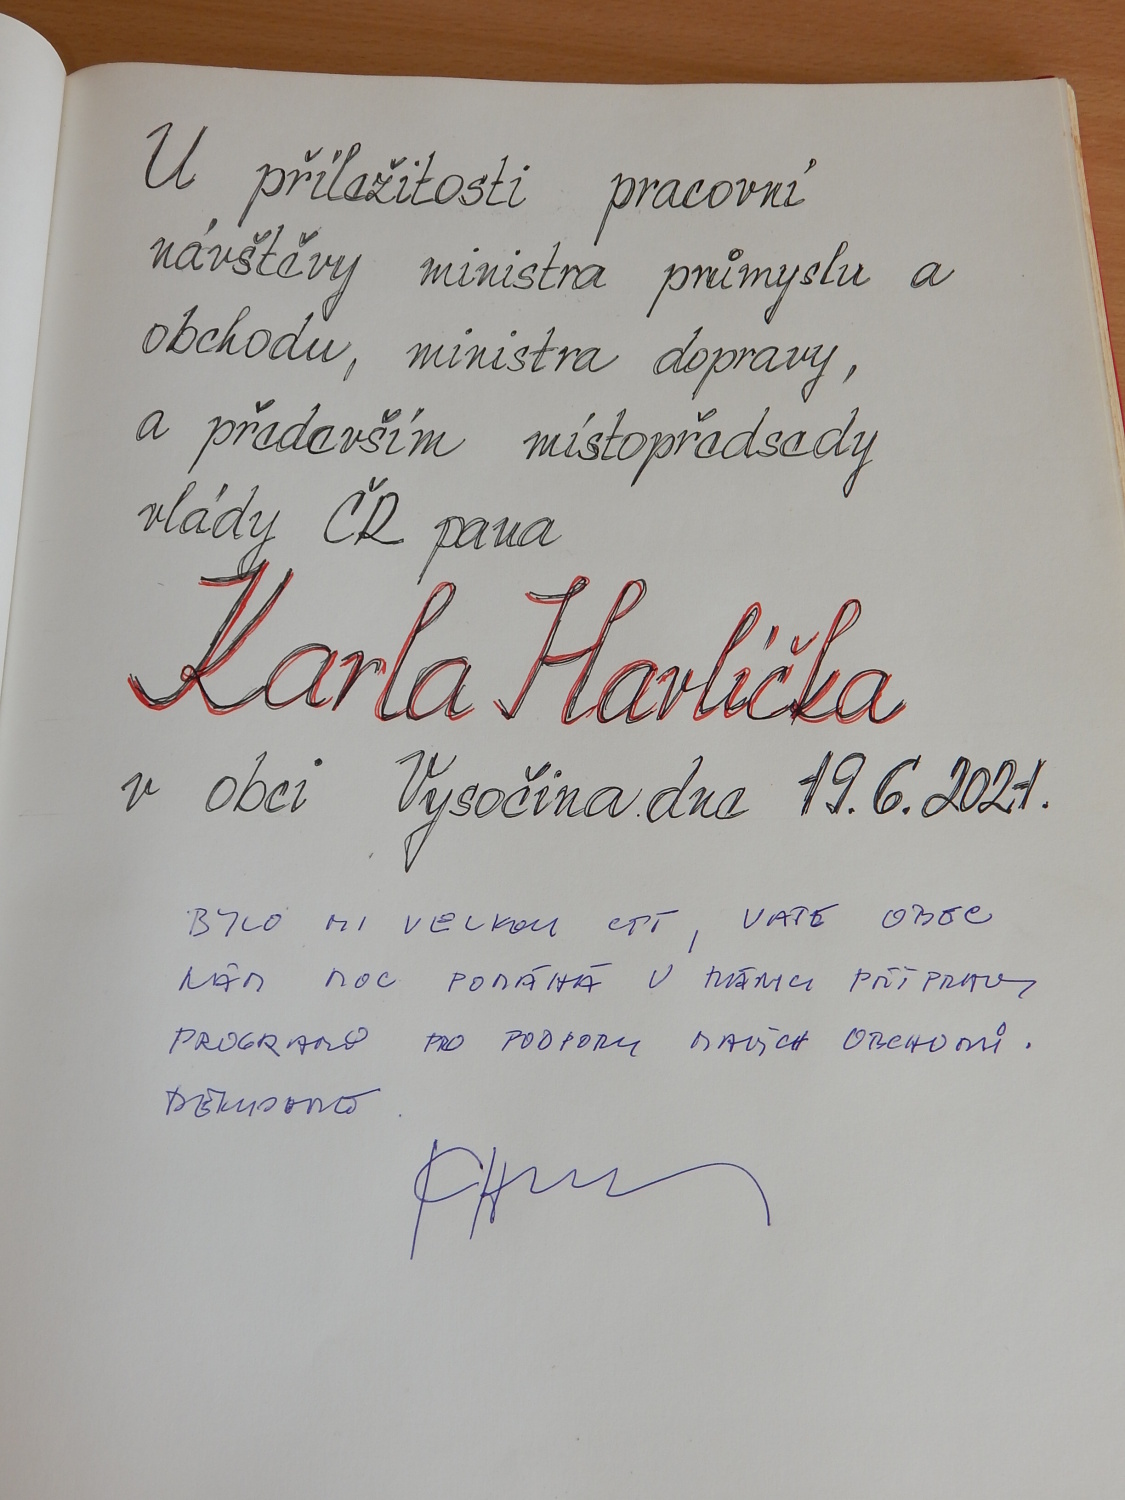 U příležitosti pracovní
návštěvy ministra průmyslu a
obchodu, ministra dopravy,
a především místopředsedy
vlády ČR pana
Karla Havlíčka
v obci Vysočina dne 19.6.2021.
BYLO MI VELKOU CTÍ, VAŠE OBEC
NÁM MOC POMÁHÁ V RÁMCI PŘÍPRAVY
PROGRAMŮ PRO PODPORU MALÝCH OBCHODŮ.
DĚKUJEME